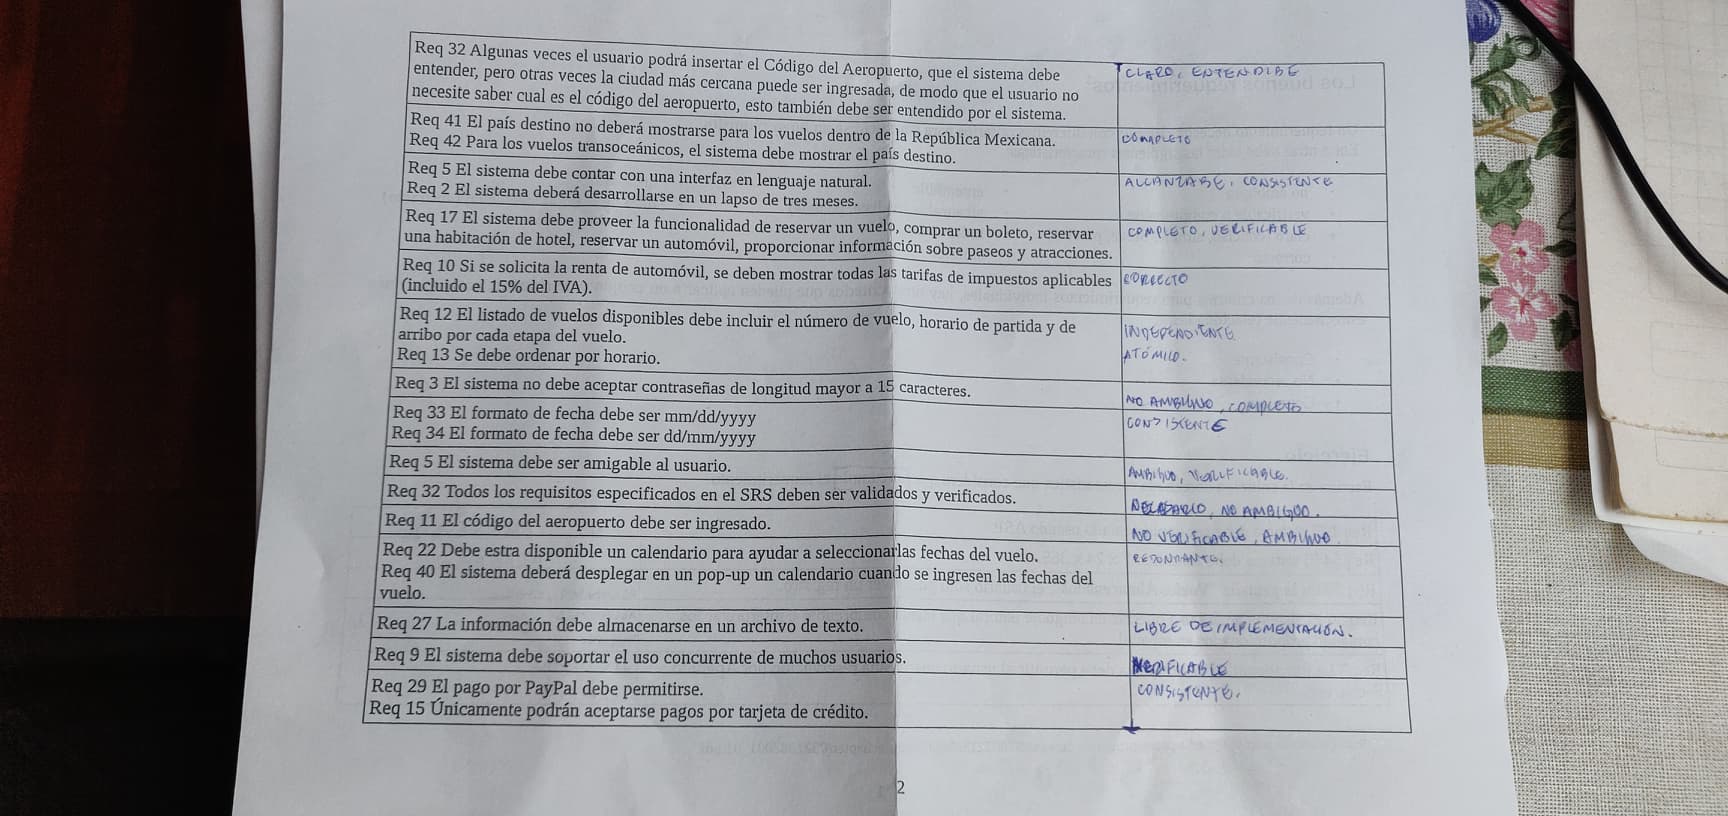 Req 32 Algunas veces el usuario podrá insertar el Código del Aeropuerto, que el sistema debe
entender, pero otras veces la ciudad más cercana puede ser ingresada, de modo que el usuario no
necesite saber cual es el código del aeropuerto, esto también debe ser entendido por el sistema.
CLARO, ENTENDIBE
Req 41 El país destino no deberá mostrarse para los vuelos dentro de la República Mexicana.
Req 42 Para los vuelos transoceánicos, el sistema debe mostrar el país destino.
COMPLETO
Req 5 El sistema debe contar con una interfaz en lenguaje natural.
Req 2 El sistema deberá desarrollarse en un lapso de tres meses.
ALCANZABE, CONSISTENTE
Req 17 El sistema debe proveer la funcionalidad de reservar un vuelo, comprar un boleto, reservar
una habitación de hotel, reservar un automóvil, proporcionar información sobre paseos y atracciones.
COMPLETO, VERIFICABLE
Req 10 Si se solicita la renta de automóvil, se deben mostrar todas las tarifas de impuestos aplicables
(incluido el 15% del IVA).
CORRECTO
Req 12 El listado de vuelos disponibles debe incluir el número de vuelo, horario de partida y de
arribo por cada etapa del vuelo.
Req 13 Se debe ordenar por horario.
INDEPENDIENTE
ATÓMICO.
Req 3 El sistema no debe aceptar contraseñas de longitud mayor a 15 caracteres.
NO AMBIGUO, COMPLETO
Req 33 El formato de fecha debe ser mm/dd/yyyy
Req 34 El formato de fecha debe ser dd/mm/yyyy
CONSISTENTE
Req 5 El sistema debe ser amigable al usuario.
AMBIGUO, VERIFICABLE.
Req 32 Todos los requisitos especificados en el SRS deben ser validados y verificados.
NECESARIO, NO AMBIGUO.
Req 11 El código del aeropuerto debe ser ingresado.
NO VERIFICABLE, AMBIGUO
Req 22 Debe estra disponible un calendario para ayudar a seleccionarlas fechas del vuelo.
Req 40 El sistema deberá desplegar en un pop-up un calendario cuando se ingresen las fechas del
vuelo.
REDONDANTE.
Req 27 La información debe almacenarse en un archivo de texto.
LIBRE DE IMPLEMENTACIÓN.
Req 9 El sistema debe soportar el uso concurrente de muchos usuarios.
VERIFICABLE
Req 29 El pago por PayPal debe permitirse.
Req 15 Únicamente podrán aceptarse pagos por tarjeta de crédito.
CONSISTENTE.
2